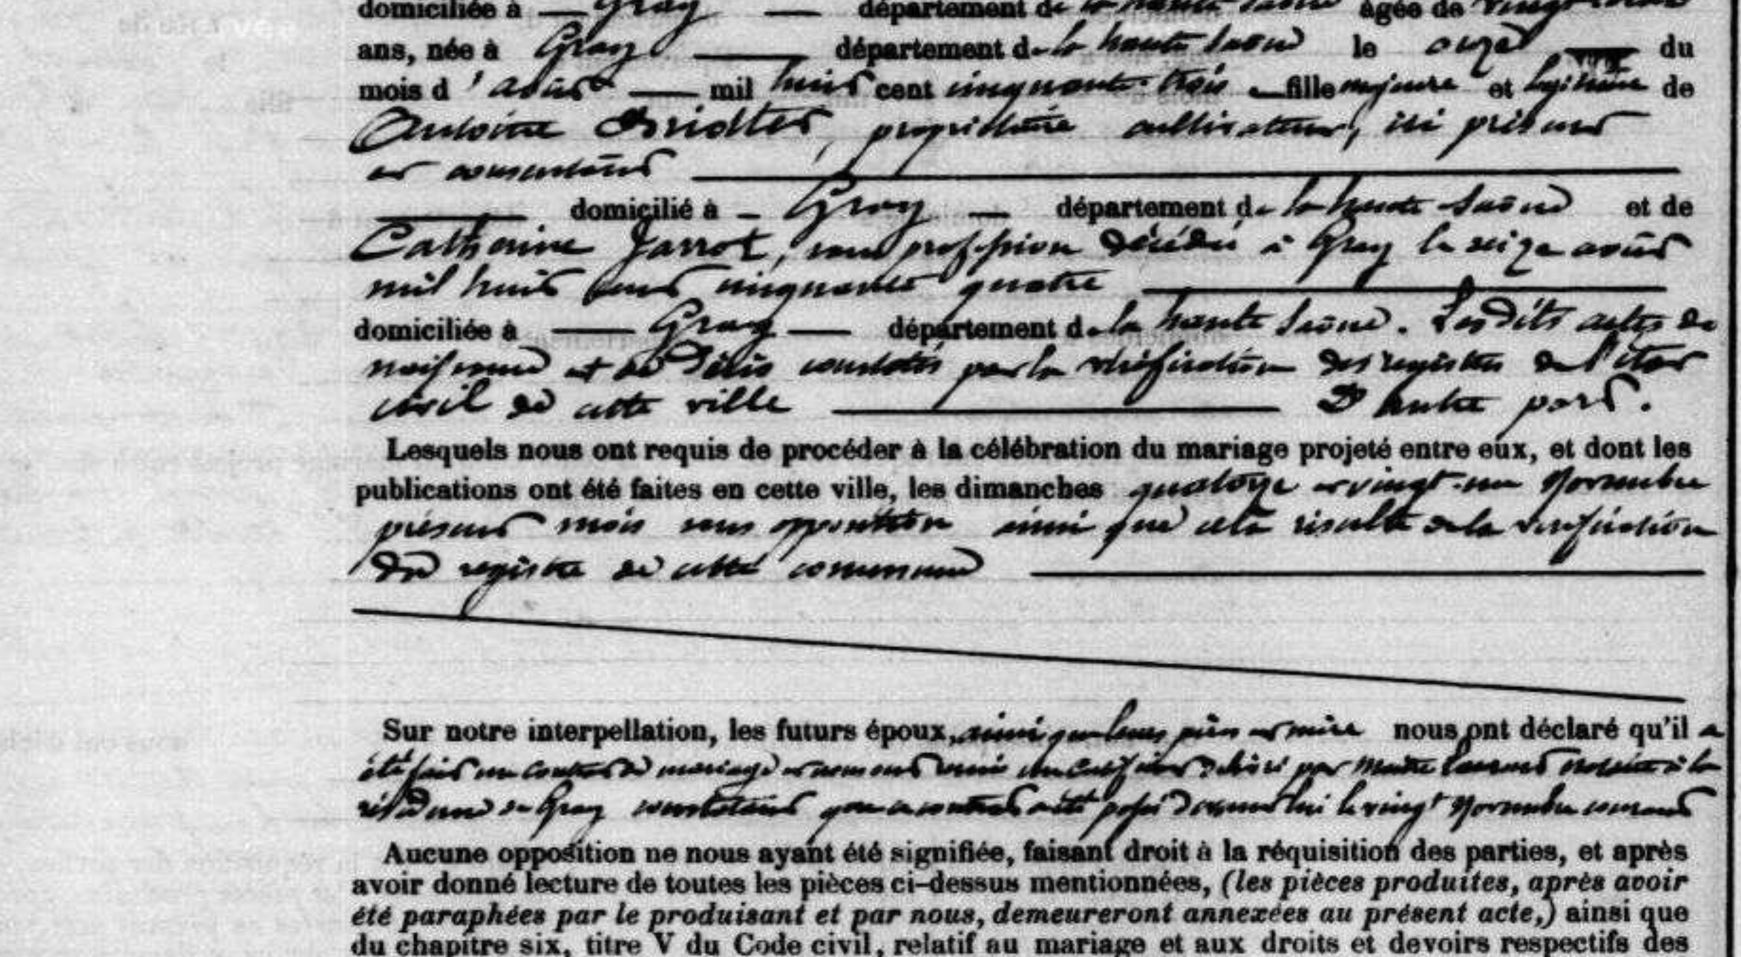 domiciliée à — Gray — département de la haute Saône âgée de vingt
ans, née à Gray — département de la haute Saône le onze du
mois d'août — mil huit cent cinquante-trois — fille majeure et légitime de
Antoine propriétaire cultivateur, ici présent
et consentant
domicilié à — Gray — département de la haute Saône et de
Catherine Jarrot, sans profession décédée à Gray le seize août
mil huit cent cinquante quatre
domiciliée à — Gray — département de la haute Saône. Les dits actes de
naissance et de décès constatés par la vérification des registres de l'état
civil de cette ville — D'autre part.
Lesquels nous ont requis de procéder à la célébration du mariage projeté entre eux, et dont les
publications ont été faites en cette ville, les dimanches quatorze et vingt-un Novembre
présent mois sans opposition ainsi que cela résulte de la vérification
du registre de cette commune
Sur notre interpellation, les futurs époux, ainsi que leurs pères et mère nous ont déclaré qu'il a
été fait un contrat de mariage et nous ont remis un certificat délivré par Maître notaire à la
résidence de Gray constatant que ce contrat a été passé devant lui le vingt Novembre courant
Aucune opposition ne nous ayant été signifiée, faisant droit à la réquisition des parties, et après
avoir donné lecture de toutes les pièces ci-dessus mentionnées, (les pièces produites, après avoir
été paraphées par le produisant et par nous, demeureront annexées au présent acte,) ainsi que
du chapitre six, titre V du Code civil, relatif au mariage et aux droits et devoirs respectifs des